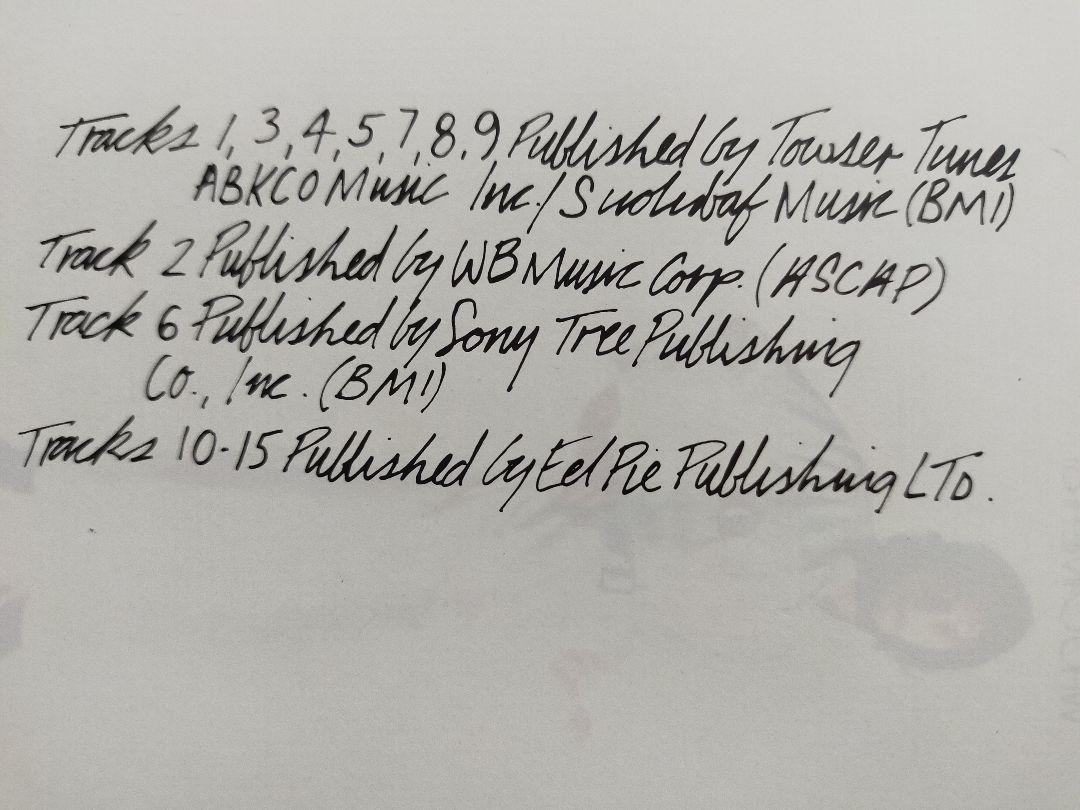 Tracks 1, 3, 4, 5, 7, 8, 9 Published by Towser Tunes
ABKCO Music Inc./Suolubaf Music (BMI)
Track 2 Published by WB Music Corp. (ASCAP)
Track 6 Published by Sony Tree Publishing
Co., Inc. (BMI)
Tracks 10-15 Published by Eel Pie Publishing LTD.